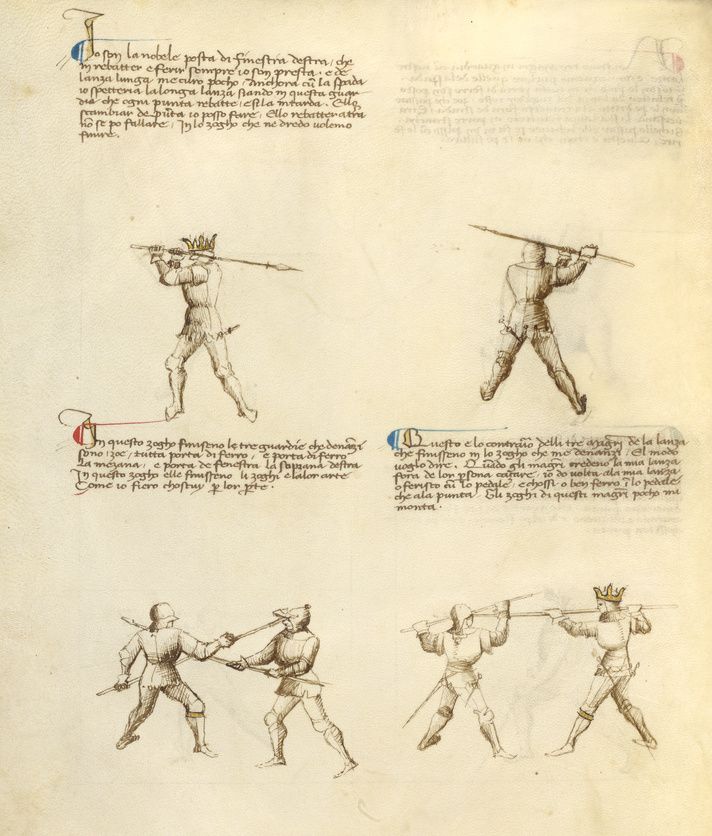 Io son la nobele posta di finestra destra, che
in rebatter e ferir sempre io son presta. e de
lanza lunga me curo pocho. Anchora cū la spada
io spetteria la longa lanza, stando in questa guar
dia che ogni punta rebatte, e
scambiar de punta io posso fare, Ello rebatter atra
nō se po fallare, In lo zogho che ne dredo volemo
finire.
In questo zogho finiseno le tre guardie che denāzi
sono, zoe, tutta porta di ferro, e porta di ferro
la mezana, e porta de fenestra la soprana destra
In questo zogho elle finisseno li zoghi e lalor arte
Come io fiero chostuy p lor pte.
Questo e lo contrario delli tre magiri de la lanza
che finisseno in lo zogho che me denanzi, El modo
voglo dire. Quādo gli magiri credeno la mia lanza
fora de lor psona, io do volta ala mia lanza,
o feristo cū lo pedale, e chossi o ben ferro ī lo pedale,
che ala punta. Gli zoghi di questi magiri pocho mi
monta.